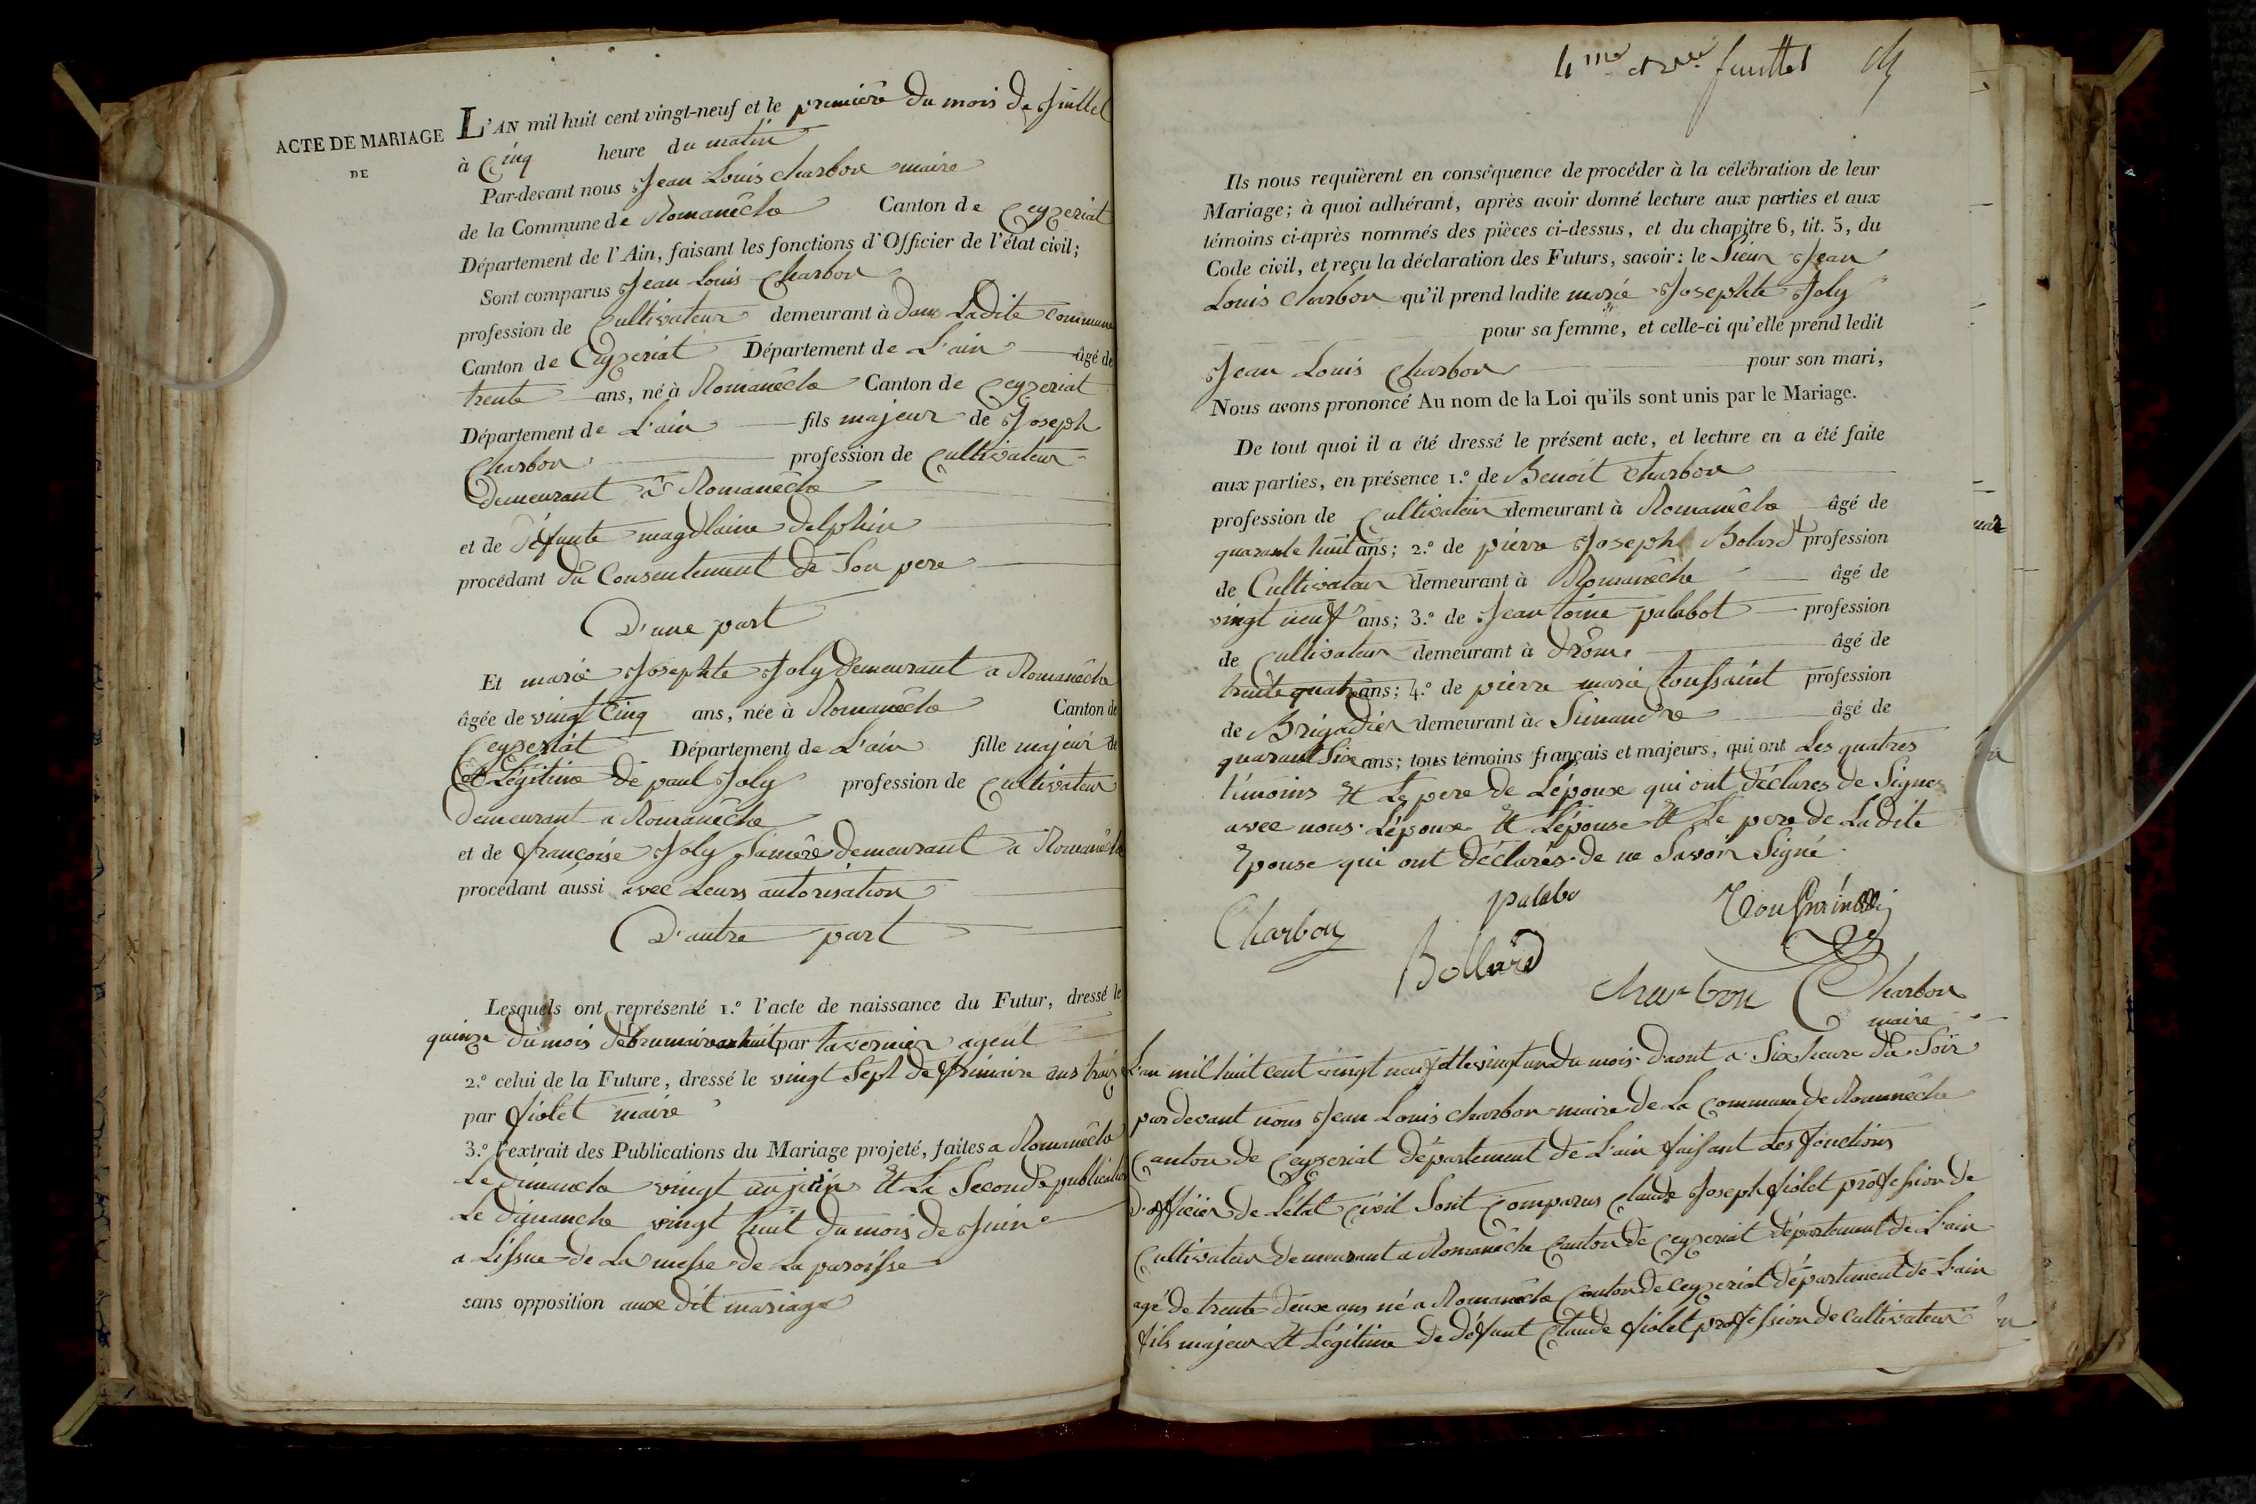 ACTE DE MARIAGE
DE
L'AN mil huit cent vingt-neuf et le première du mois de Juillet
à Cinq heure du matin
Par-devant nous Jean Louis charbon maire
de la Commune de Romanêche Canton de Ceyzeriat
Département de l'Ain, faisant les fonctions d'Officier de l'état civil;
Sont comparus Jean Louis Charbon
profession de Cultivateur demeurant à dans Ladite commune
Canton de Ceyzeriat Département de L'ain âgé de
trente ans, né à Romanêche Canton de Ceyzeriat
Département de L'ain fils majeur de Joseph
Charbon profession de Cultivateur
demeurant à Romanêche
et de défunte magdlaine delphin
procédant du Consentement de Son pere
D'une part
Et marie Josephte Joly demeurant a Romanêche
âgée de vingt Cinq ans, née à Romanêche Canton de
Ceyzeriat Département de L'ain fille majeur de
et Légitime de paul Joly profession de Cultivateur
demeurant a Romanêche
et de françoise Joly Samere demeurant a Romanêche
procédant aussi avec Leurs autorisation
D'autre part
Lesquels ont représenté 1.º l'acte de naissance du Futur, dressé le
quinze du mois de brumaire an huit par tavernier agent
2.º celui de la Future, dressé le vingt Sept de frimaire ans trois
par fiolet maire
3.º l'extrait des Publications du Mariage projeté, faites a Romanêche
Le Dimanche vingt un juin Et La Seconde publication
Le dimanche vingt huit du mois de Juin
a Lissue de La messe de La paroisse
sans opposition aux dit mariage
4me et feuillet
Ils nous requièrent en conséquence de procéder à la célébration de leur
Mariage; à quoi adhérant, après avoir donné lecture aux parties et aux
témoins ci-après nommés des pièces ci-dessus, et du chapitre 6, tit. 5, du
Code civil, et reçu la déclaration des Futurs, savoir: le Sieur Jean
Louis Charbon qu'il prend ladite marie Josephte Joly
pour sa femme, et celle-ci qu'elle prend ledit
Jean Louis Charbon pour son mari,
Nous avons prononcé Au nom de la Loi qu'ils sont unis par le Mariage.
De tout quoi il a été dressé le présent acte, et lecture en a été faite
aux parties, en présence 1.º de Benoit Charbon
profession de Cultivateur demeurant à Romanêche âgé de
quarante huit ans; 2.º de pierre Joseph Bolard profession
de Cultivateur demeurant à Romanêche âgé de
vingt neuf ans; 3.º de Jean toine palabot profession
de Cultivateur demeurant à drom âgé de
trente quatre ans; 4.º de pierre marie toussaint profession
de Brigadier demeurant à Simandre âgé de
quarant Six ans; tous témoins français et majeurs, qui ont Les quatres
témoins Et Le pere de L'époux qui ont déclarés de Signer
avec nous. L'époux Et L'épouse Et Le pere de Ladite
Epouse qui ont déclarés de ne Savoir Signé
palabo
Charbon
Bollard
charbon
Charbon
maire
L'an mil huit cent vingt neuf et le vingt un du mois d'aout a Six heure du Soir
pardevant nous Jean Louis charbon maire de La Commune de Romanêche
Canton de Ceyzeriat département de L'ain faisant Les fonctions
d'officier de L'état civil Sont Comparus Claude Joseph fiolet profession de
Cultivateur demeurant a Romanêche Canton de Ceyzeriat département de L'ain
agé de trente deux ans né a Romanêche Canton de Ceyzeriat département de L'ain
fils majeur Et Légitime de défunt Claude fiolet profession de Cultivateur